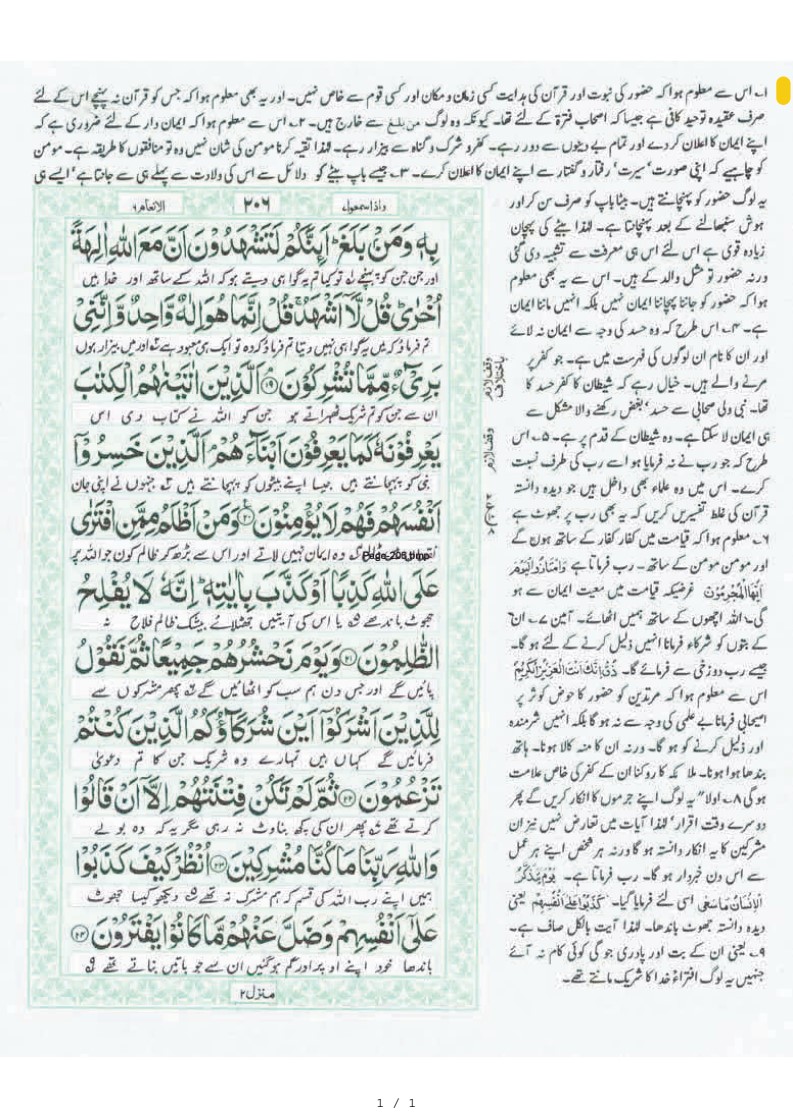 ۱۔ اس سے معلوم ہوا کہ حضور کی نبوت اور قرآن کی ہدایت کسی زمان و مکان اور کسی قوم سے خاص نہیں۔ اور یہ بھی معلوم ہوا کہ جس کو قرآن نہ پہنچے اس کے لئے
صرف عقیدہ توحید کافی ہے جیسا کہ اصحاب فترۃ کے لئے تھا۔ کیونکہ وہ لوگ من بلغ سے خارج ہیں۔ ۲۔ اس سے معلوم ہوا کہ ایمان دار کے لئے ضروری ہے کہ
اپنے ایمان کا اعلان کر دے اور تمام بے دینوں سے دور رہے۔ کفر و شرک و گناہ سے بیزار رہے۔ لہٰذا تقیہ کرنا مومن کی شان نہیں وہ تو منافقوں کا طریقہ ہے۔ مومن
کو چاہیے کہ اپنی صورت' سیرت' رفتار و گفتار سے اپنے ایمان کا اعلان کرے۔ ۳۔ جیسے باپ بیٹے کو دلائل سے اس کی ولادت سے پہلے ہی سے جانتا ہے' ایسے ہی
یہ لوگ حضور کو پہچانتے ہیں۔ بیٹا باپ کو صرف سن کر اور
ہوش سنبھالنے کے بعد پہچانتا ہے۔ لہٰذا بیٹے کی پہچان
زیادہ قوی ہے اس لئے اس ہی معرفت سے تشبیہ دی گئی
ورنہ حضور تو مثل والد کے ہیں۔ اس سے یہ بھی معلوم
ہوا کہ حضور کو جاننا پہچاننا ایمان نہیں بلکہ انہیں ماننا ایمان
ہے۔ ۴۔ اس طرح کہ وہ حسد کی وجہ سے ایمان نہ لائے
اور ان کا نام ان لوگوں کی فہرست میں ہے۔ جو کفر پر
مرنے والے ہیں۔ خیال رہے کہ شیطان کا کفر حسد کا
تھا۔ نبی ولی صحابی سے حسد' بغض رکھنے والا مشکل سے
ہی ایمان لا سکتا ہے۔ وہ شیطان کے قدم پر ہے۔ ۵۔ اس
طرح کہ جو رب نے نہ فرمایا ہو اسے رب کی طرف نسبت
کرے۔ اس میں وہ علماء بھی داخل ہیں جو دیدہ دانستہ
قرآن کی غلط تفسیریں کریں کہ یہ بھی رب پر جھوٹ ہے
۶۔ معلوم ہوا کہ قیامت میں کفار کفار کے ساتھ ہوں گے
اور مومن مومن کے ساتھ۔ رب فرماتا ہے وَامْتَازُوا الْيَوْمَ
اَيُّهَا الْمُجْرِمُوْنَ غرضیکہ قیامت میں معیت ایمان سے ہو
گی۔ اللہ اچھوں کے ساتھ ہمیں اٹھائے۔ آمین ۷۔ ان
کے بتوں کو شرکاء فرمانا انہیں ذلیل کرنے کے لئے ہو گا۔
جیسے رب دوزخی سے فرمائے گا۔ ذُقْ اِنَّكَ اَنْتَ الْعَزِيْزُ الْكَرِيْمُ
اس سے معلوم ہوا کہ مرتدین کو حضور کا حوض کوثر پر
اصیحابی فرمانا بے علمی کی وجہ سے نہ ہو گا بلکہ انہیں شرمندہ
اور ذلیل کرنے کو ہو گا۔ ورنہ ان کا منہ کالا ہونا۔ ہاتھ
بندھا ہوا ہونا۔ ملائکہ کا روکنا ان کے کفر کی خاص علامت
ہو گی ۸۔ اولا" یہ لوگ اپنے جرموں کا انکار کریں گے پھر
دوسرے وقت اقرار' لہٰذا آیات میں تعارض نہیں نیز ان
مشرکین کا یہ انکار دانستہ ہو گا ورنہ ہر شخص اپنے ہر عمل
سے اس دن خبردار ہو گا۔ رب فرماتا ہے۔ يَوْمَ يَتَذَكَّرُ
الْاِنْسَانُ مَا سَعٰى اسی لئے فرمایا گیا۔ كَذَبُوْا عَلٰى اَنْفُسِهِمْ یعنی
دیدہ دانستہ جھوٹ باندھا۔ لہٰذا آیت بالکل صاف ہے۔
۹۔ یعنی ان کے بت اور پادری جوگی کوئی کام نہ آئے
جنہیں یہ لوگ افتراءً خدا کا شریک مانتے تھے۔
واذا سمعوا ۷ ۲۰۶ الانعام ۶
بِهٖ وَمَنْۢ بَلَغَ ؕ اَئِنَّكُمْ لَتَشْهَدُوْنَ اَنَّ مَعَ اللّٰهِ اٰلِهَةً
اور جن جن کو پہنچے لہ تو کیا تم یہ گواہی دیتے ہو کہ اللہ کے ساتھ اور خدا ہیں
اُخْرٰى ؕ قُلْ لَّاۤ اَشْهَدُ ۚ قُلْ اِنَّمَا هُوَ اِلٰهٌ وَّاحِدٌ وَّاِنَّنِيْ
تم فرماؤ کہ میں یہ گواہی نہیں دیتا تم فرماؤ کہ وہ تو ایک ہی معبود ہے اور میں بیزار ہوں
بَرِيْٓءٌ مِّمَّا تُشْرِكُوْنَ ۝۱۹ اَلَّذِيْنَ اٰتَيْنٰهُمُ الْكِتٰبَ
ان سے جن کو تم شریک ٹھہراتے ہو جن کو اللہ نے کتاب دی اس
يَعْرِفُوْنَهٗ كَمَا يَعْرِفُوْنَ اَبْنَآءَهُمْ ۘ اَلَّذِيْنَ خَسِرُوْۤا
نبی کو پہچانتے ہیں جیسا اپنے بیٹوں کو پہچانتے ہیں جنہوں نے اپنی جان
اَنْفُسَهُمْ فَهُمْ لَا يُؤْمِنُوْنَ ۝۲۰ وَمَنْ اَظْلَمُ مِمَّنِ افْتَرٰى
وہ ایمان نہیں لاتے اور اس سے بڑھ کر ظالم کون جو اللہ پر
Page-206.bmp
عَلَى اللّٰهِ كَذِبًا اَوْ كَذَّبَ بِاٰيٰتِهٖ ؕ اِنَّهٗ لَا يُفْلِحُ
جھوٹ باندھے یا اس کی آیتیں جھٹلائے بیشک ظالم فلاح نہ
الظّٰلِمُوْنَ ۝۲۱ وَيَوْمَ نَحْشُرُهُمْ جَمِيْعًا ثُمَّ نَقُوْلُ
پائیں گے اور جس دن ہم سب کو اٹھائیں گے پھر مشرکوں سے
لِلَّذِيْنَ اَشْرَكُوْۤا اَيْنَ شُرَكَآؤُكُمُ الَّذِيْنَ كُنْتُمْ
فرمائیں گے کہاں ہیں تمہارے وہ شریک جن کا تم دعوی
تَزْعُمُوْنَ ۝۲۲ ثُمَّ لَمْ تَكُنْ فِتْنَتُهُمْ اِلَّاۤ اَنْ قَالُوْا
کرتے تھے پھر ان کی کچھ بناوٹ نہ رہی مگر یہ کہ وہ بولے
وَاللّٰهِ رَبِّنَا مَا كُنَّا مُشْرِكِيْنَ ۝۲۳ اُنْظُرْ كَيْفَ كَذَبُوْا
ہمیں اپنے رب اللہ کی قسم کہ ہم مشرک نہ تھے دیکھو کیسا جھوٹ
عَلٰٓى اَنْفُسِهِمْ وَضَلَّ عَنْهُمْ مَّا كَانُوْا يَفْتَرُوْنَ ۝۲۴
باندھا خود اپنے اوپر اور گم ہو گئیں ان سے جو باتیں بناتے تھے
منزل ۲
وقف لازم
باختلاف
وقف لازم
1 / 1